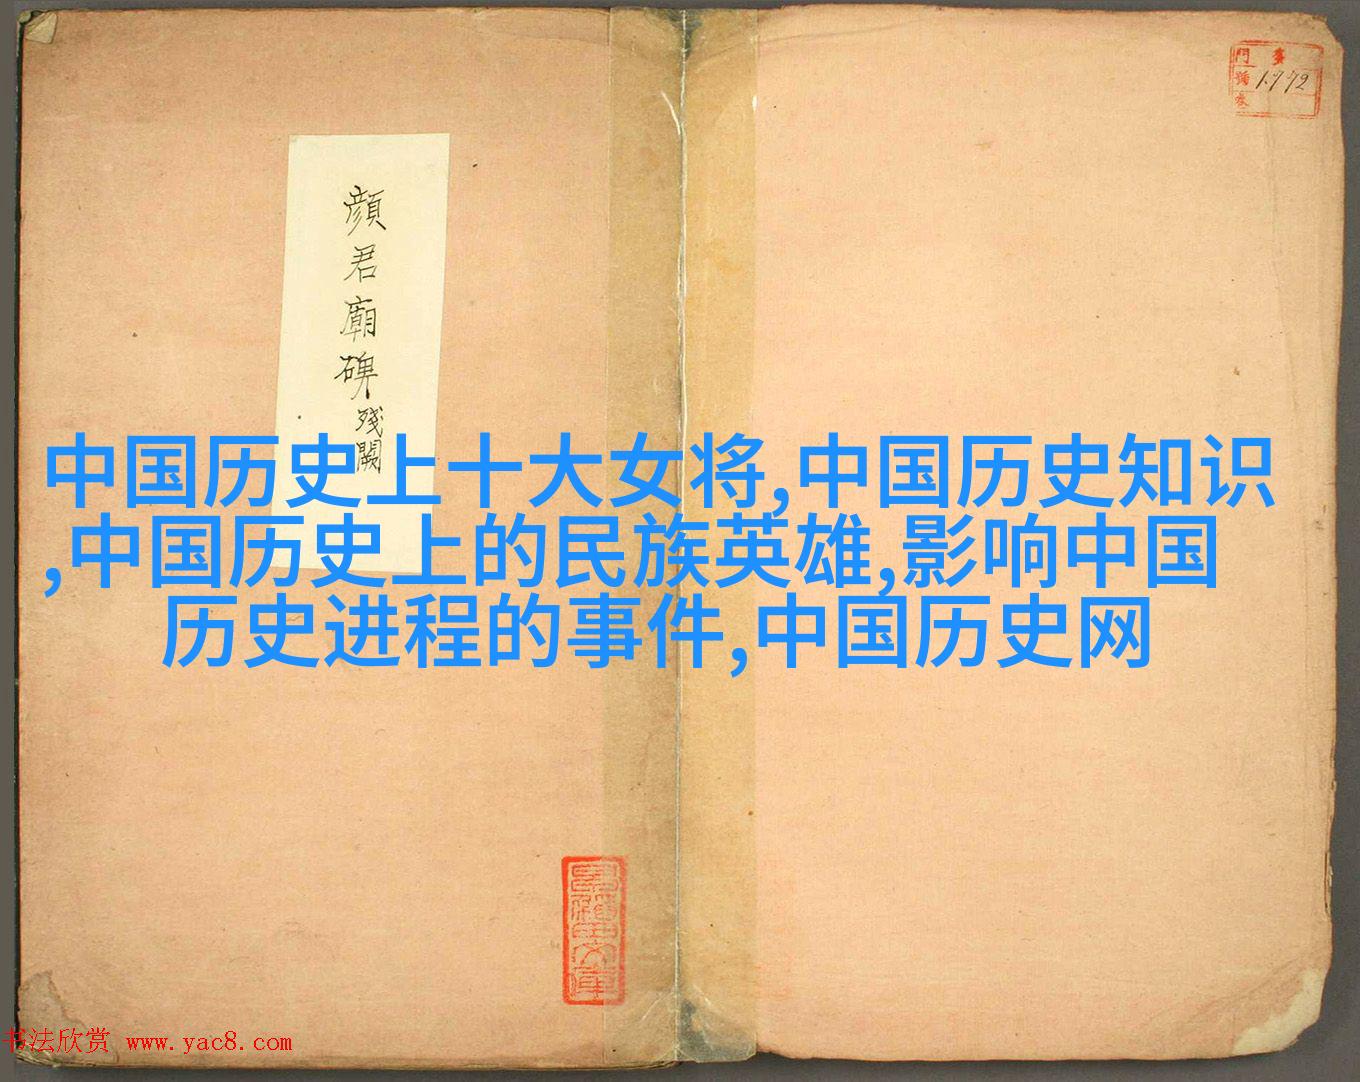 門 㐧
號 1772
卷
顔君廟碑殘闕
中国历史上十大女将,中国历史知识
,中国历史上的民族英雄,影响中国
历史进程的事件,中国历史网
书法欣赏 www.yac8.com